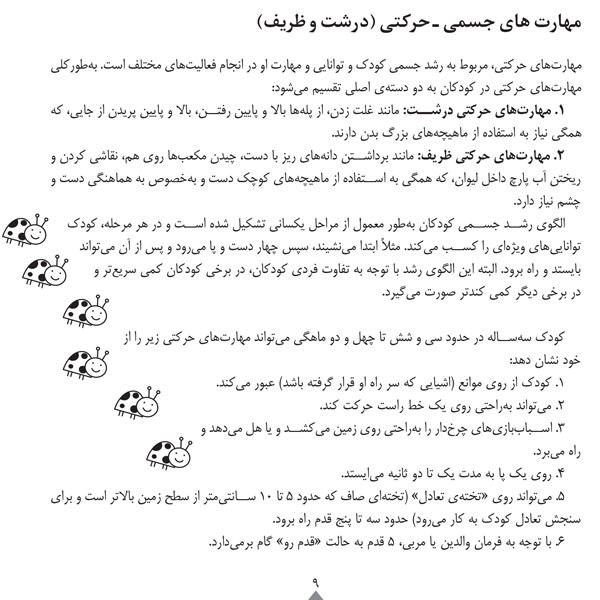 مهارت های جسمی ـ حرکتی (درشت و ظریف)
مهارت‌های حرکتی، مربوط به رشد جسمی کودک و توانایی و مهارت او در انجام فعالیت‌های مختلف است. به‌طورکلی
مهارت‌های حرکتی در کودکان به دو دسته‌ی اصلی تقسیم می‌شود:
۱. مهارت‌های حرکتی درشــت: مانند غلت زدن، از پله‌ها بالا و پایین رفتــن، بالا و پایین پریدن از جایی، که
همگی نیاز به استفاده از ماهیچه‌های بزرگ بدن دارند.
۲. مهارت‌های حرکتی ظریف: مانند برداشــتن دانه‌های ریز با دست، چیدن مکعب‌ها روی هم، نقاشی کردن و
ریختن آب پارچ داخل لیوان، که همگی به اســتفاده از ماهیچه‌های کوچک دست و به‌خصوص به هماهنگی دست و
چشم نیاز دارد.
الگوی رشــد جســمی کودکان به‌طور معمول از مراحل یکسانی تشکیل شده اســت و در هر مرحله، کودک
توانایی‌های ویژه‌ای را کســب می‌کند. مثلاً ابتدا می‌نشیند، سپس چهار دست و پا می‌رود و پس از آن می‌تواند
بایستد و راه برود. البته این الگوی رشد با توجه به تفاوت فردی کودکان، در برخی کودکان کمی سریع‌تر و
در برخی دیگر کمی کندتر صورت می‌گیرد.
کودک سه‌ســاله در حدود سی و شش تا چهل و دو ماهگی می‌تواند مهارت‌های حرکتی زیر را از
خود نشان دهد:
۱. کودک از روی موانع (اشیایی که سر راه او قرار گرفته باشد) عبور می‌کند.
۲. می‌تواند به‌راحتی روی یک خط راست حرکت کند.
۳. اســباب‌بازی‌های چرخ‌دار را به‌راحتی روی زمین می‌کشــد و یا هل می‌دهد و
راه می‌برد.
۴. روی یک پا به مدت یک تا دو ثانیه می‌ایستد.
۵. می‌تواند روی «تخته‌ی تعادل» (تخته‌ای صاف که حدود ۵ تا ۱۰ ســانتی‌متر از سطح زمین بالاتر است و برای
سنجش تعادل کودک به کار می‌رود) حدود سه تا پنج قدم راه برود.
۶. با توجه به فرمان والدین یا مربی، ۵ قدم به حالت «قدم رو» گام برمی‌دارد.
۹